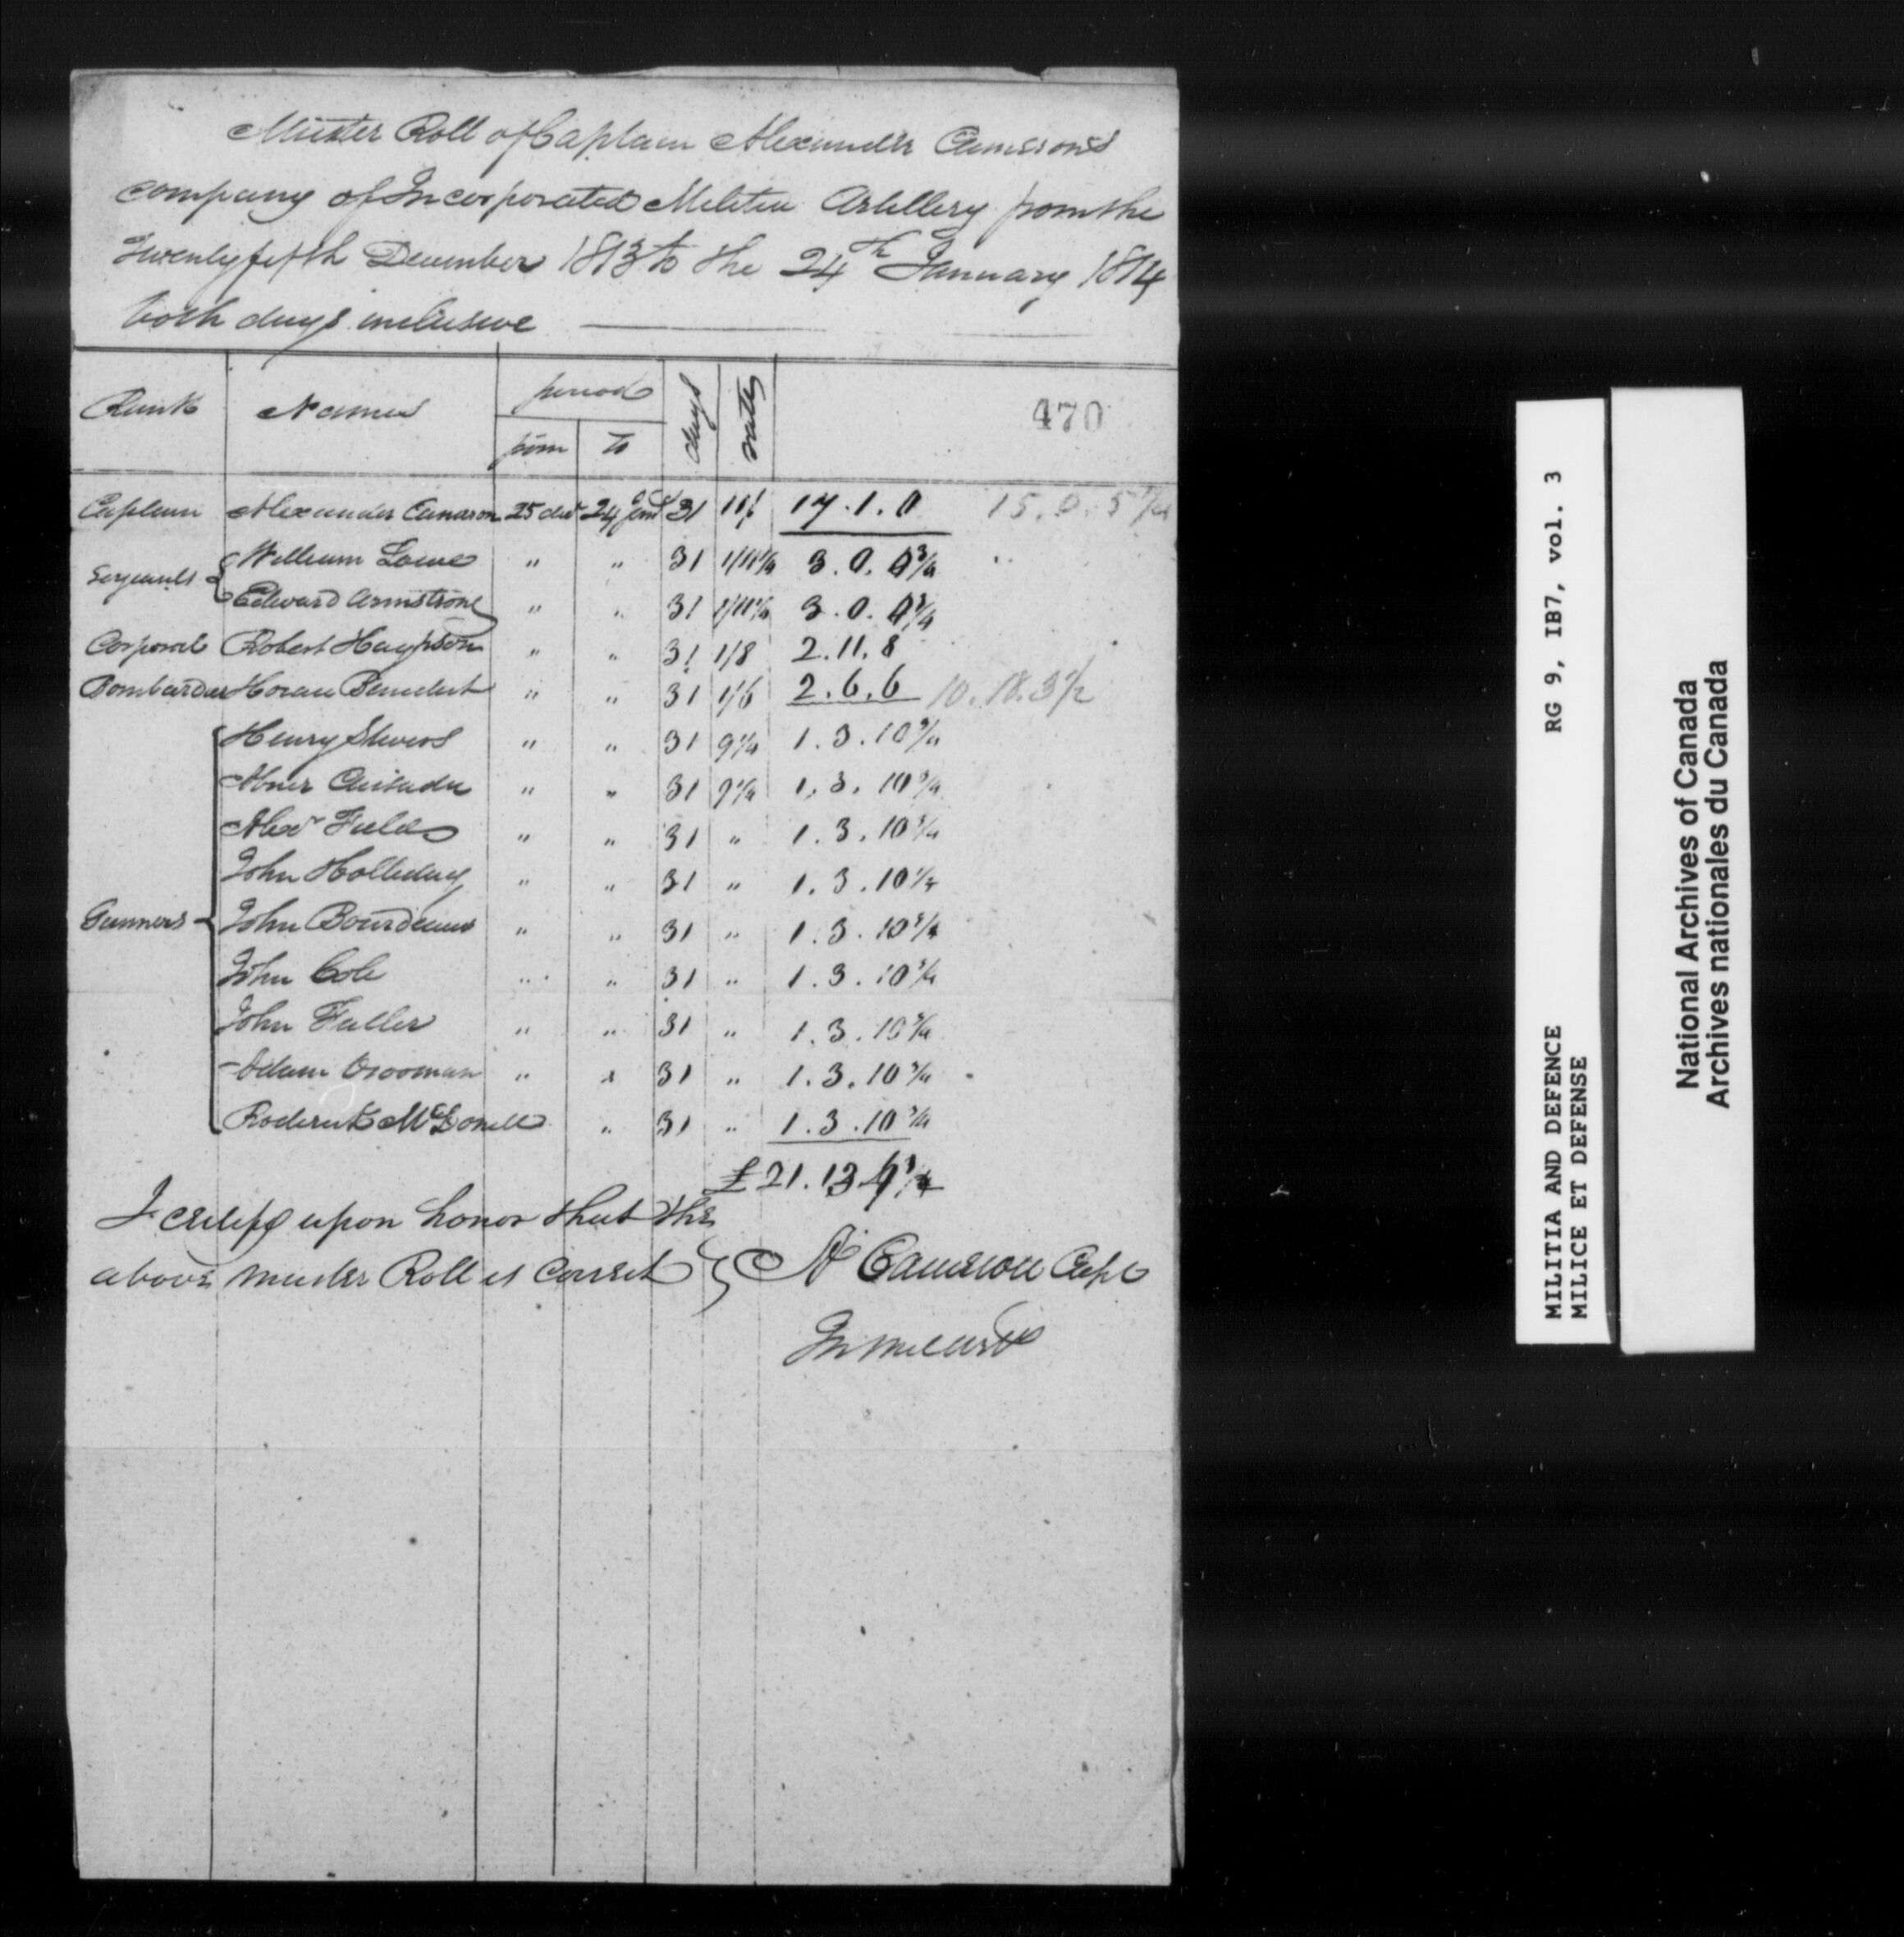 Muster Roll of Captain Alexander Camerons
company of Incorporated Militia Artillery from the
Twenty fifth December 1813 to the 24th January 1814
both days inclusive
Rank Names period days rates 470
from to
Captain Alexander Cameron 25 decr 24 Jany 31 11/ 17.1.0 15.0.5 1/4
Serjeants William Lowe " " 31 1/11 1/4 3.0.0 3/4
Edward Armstrong " " 31 1/11 1/4 3.0.0 3/4
Corporal Robert Haypson " " 31 1/8 2.11.8
Bombardier Horace Benedict " " 31 1/6 2.6.6 10.18.3 1/2
Henry " " 31 9 1/4 1.3.10 3/4
Abner " " 31 9 1/4 1.3.10 3/4
Alexr Field " " 31 " 1.3.10 3/4
John Holliday " " 31 " 1.3.10 3/4
Gunners John Bourdeaus " " 31 " 1.3.10 3/4
John Cole " " 31 " 1.3.10 3/4
John Fuller " " 31 " 1.3.10 3/4
Adam Vrooman " " 31 " 1.3.10 3/4
Roderick McDonell " 31 " 1.3.10 3/4
£21.13
I certify upon honor that the
above muster Roll is correct } A Cameron Capt
In Mil Art
MILITIA AND DEFENCE RG 9, IB7, vol. 3
MILICE ET DEFENSE
National Archives of Canada
Archives nationales du Canada